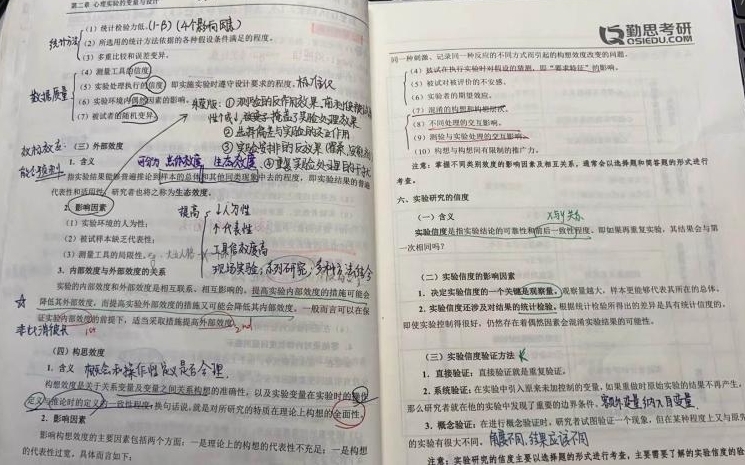 第二章 心理实验的变量与设计
（1）统计检验力低。(1-β)（4个影响因素）
统计方法
（2）所选用的统计方法依据的各种假设条件满足的程度。
（3）多重比较和误差变异。
（4）测量工具的信度
数据质量
（5）实验处理执行的信度，即实施实验时遵守设计要求的程度。标准化
（6）实验环境内偶然因素的影响。
（7）被试者的随机变异。
（三）外部效度
1. 含义
可分为 总体效度 生态效度
指实验结果能够普遍推论到样本的总体和其他同类现象中去的程度，即实验结果的普遍
代表性和适用性，研究者也将之称为生态效度。
2. 影响因素
（1）实验环境的人为性；
（2）被试样本缺乏代表性；
（3）测量工具的局限性。
提高
↓人为性
↑代表性
工具信效度高
现场实验；系列研究；多种方法结合
3. 内部效度与外部效度的关系
实验的内部效度和外部效度是相互联系、相互影响的，提高实验内部效度的措施可能会
降低其外部效度，而提高实验外部效度的措施又可能会降低其内部效度。一般而言可以在保
证实验内部效度的前提下，适当采取措施提高外部效度。
1st
2nd
（四）构思效度
1. 含义 概念和操作性定义是否合理
构想效度是关于关系变量及变量之间关系构想的准确性，以及实验变量在实验时的操作
定义与推论时的定义的一致性程度，换句话说，就是对所研究的特质在理论上构想的全面性。
2. 影响因素
影响构想效度的主要因素包括两个方面：一是理论上的构想的代表性不充足；一是构想
的代表性过宽，具体而言如下：
勤思考研
QSIEDU.COM
同一种刺激、记录同一种反应的不同方式而引起的构想效度改变的问题。
（4）被试在执行实验时对假设的猜测，即“要求特征”的影响。
（5）被试对被评价的不安感。
（6）实验者的期望效应。
（7）混淆的构想和构想层次。
（8）不同处理的交互影响。
（9）测验与实验处理的交互影响。
（10）构想与构想间有限制的推广力。
注意：掌握不同类别效度的影响因素及相互关系，通常会以选择题和简答题的形式进行
考查。
六、实验研究的信度
（一）含义
实验信度是指实验结论的可靠性和前后一致性程度。即如果再重复实验，其结果会与第
一次相同吗？
（二）实验信度的影响因素
1. 决定实验信度的一个关键是观察量。观察量越大，样本更能够代表其所在的总体。
2. 实验信度还涉及对结果的统计检验。根据统计检验所得出的差异是具有统计信度的，
即使实验控制得很好，仍然存在着偶然因素会混淆实验结果的可能性。
（三）实验信度验证方法
1. 直接验证：直接验证就是重复验证。
2. 系统验证：在实验中引入原来未加控制的变量，如果重做时原始实验的结果不再产生，
那么研究者就在他的实验中发现了重要的边界条件。额外变量纳入自变量
3. 概念验证：在进行概念验证时，研究者试图验证一个现象，但在某种程度上又与原先
的实验有很大不同。角度不同，结果应该不同
注意：实验研究的信度主要以选择题的形式进行考查，主要需要了解的实验信度的验